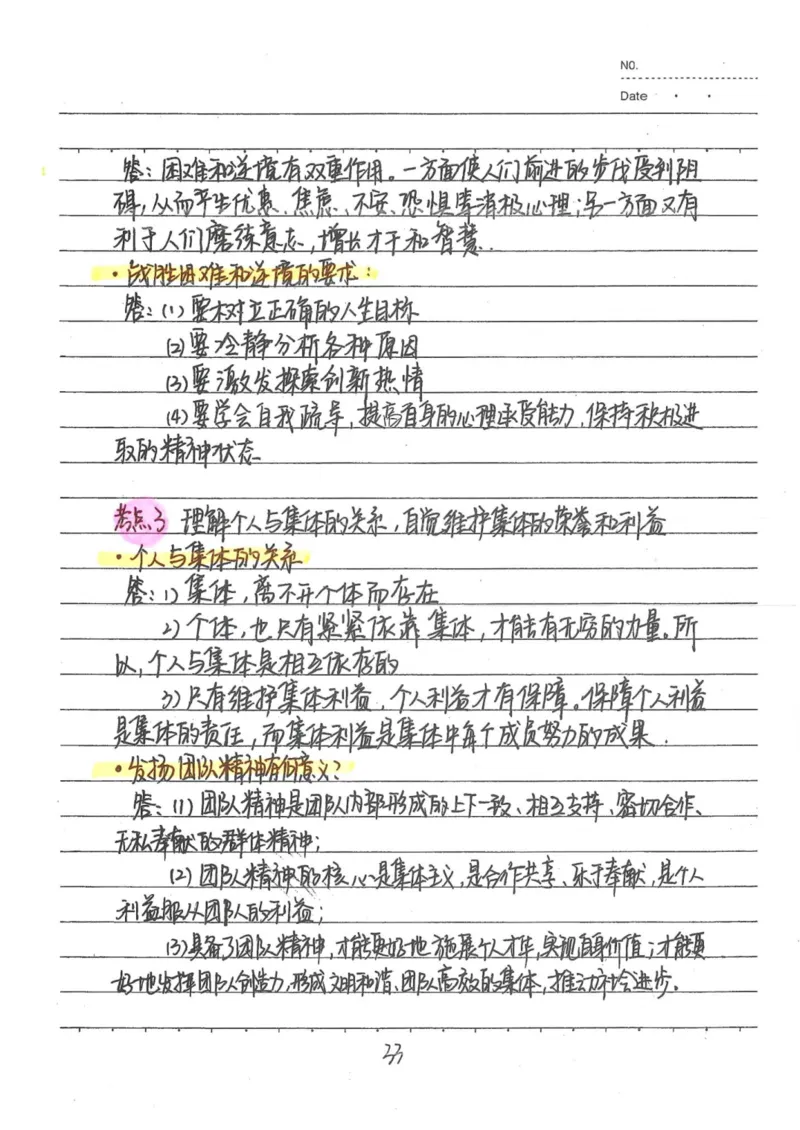 NO.
Date
答：困难和逆境有双重作用。一方面使人们前进的步伐受到阻
碍，从而产生忧患、焦虑、不安、恐惧等消极心理；另一方面又有
利于人们磨练意志，增长才干和智慧.
·战胜困难和逆境的要求：
答：(1)要树立正确的人生目标
(2)要冷静分析各种原因
(3)要激发探索创新热情
(4)要学会自我疏导，提高自身的心理承受能力，保持积极进
取的精神状态
考点3 理解个人与集体的关系，自觉维护集体的荣誉和利益
·个人与集体的关系
答：1)集体，离不开个体而存在
2)个体，也只有紧紧依靠集体，才能有无穷的力量。所
以，个人与集体是相互依存的
3)只有维护集体利益，个人利益才有保障。保障个人利益
是集体的责任，而集体利益是集体中每个成员努力的成果.
·发扬团队精神有何意义？
答：(1)团队精神是团队内部形成的上下一致、相互支持、密切合作、
无私奉献的群体精神；
(2)团队精神的核心是集体主义，是合作共享、乐于奉献，是个人
利益服从团队的利益；
(3)具备了团队精神，才能更好地施展个人才华，实现自身价值；才能更
好地发挥团队创造力，形成文明和谐、团队高效的集体，推动社会进步。
33